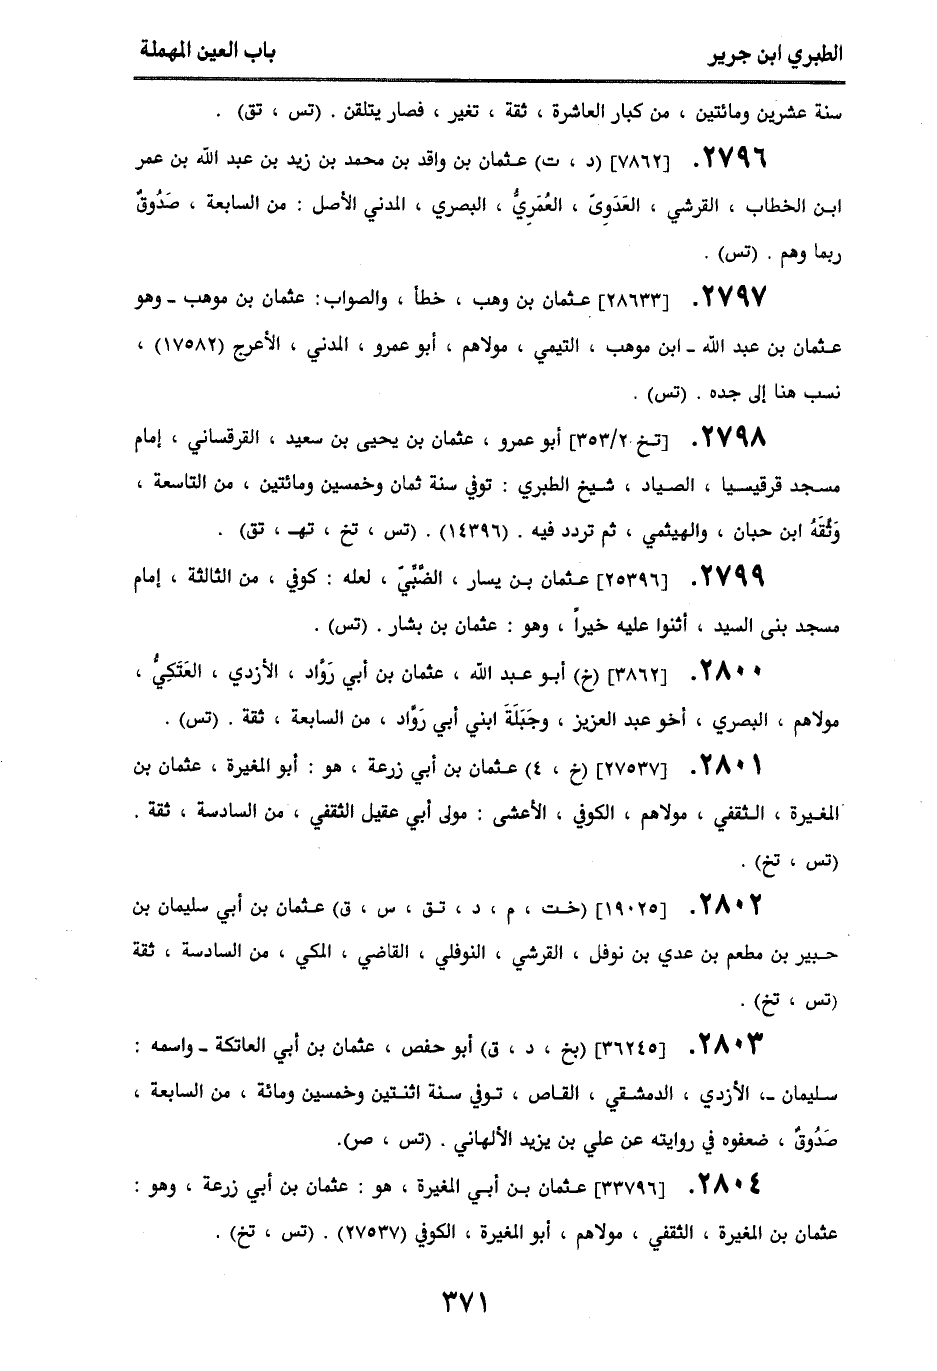 الطبري ابن جرير
باب العين المهملة
سنة عشرين ومائتين ، من كبار العاشرة ، ثقة ، تغير ، فصار يتلقن . (تس ، تق) .
٢٧٩٦. [٧٨٦٢] (د ، ت) عثمان بن واقد بن محمد بن زيد بن عبد الله بن عمر
ابن الخطاب ، القرشي ، العَدَوِىّ ، العُمَرِيُّ ، البصري ، المدني الأصل : من السابعة ، صَدُوقٌ
ربما وهم . (تس) .
٢٧٩٧. [٢٨٦٣٣] عثمان بن وهب ، خطأ ، والصواب : عثمان بن موهب ـ وهو
عثمان بن عبد الله ـ ابن موهب ، التيمي ، مولاهم ، أبو عمرو ، المدني ، الأعرج (١٧٥٨٢) ،
نسب هنا إلى جده . (تس) .
٢٧٩٨. [تخ ٣٥٣/٢] أبو عمرو ، عثمان بن يحيى بن سعيد ، القرقساني ، إمام
مسجد قرقيسيا ، الصياد ، شيخ الطبري : توفي سنة ثمان وخمسين ومائتين ، من التاسعة ،
وَثَّقَهُ ابن حبان ، والهيثمي ، ثم تردد فيه . (١٤٣٩٦) . (تس ، تخ ، تهـ ، تق) .
٢٧٩٩. [٢٥٣٩٦] عثمان بن يسار ، الضَّبِّيّ ، لعله : كوفي ، من الثالثة ، إمام
مسجد بنى السيد ، أثنوا عليه خيراً ، وهو : عثمان بن بشار . (تس) .
٢٨٠٠. [٣٨٦٢] (خ) أبو عبد الله ، عثمان بن أبي رَوَّاد ، الأزدي ، العَتَكِيُّ ،
مولاهم ، البصري ، أخو عبد العزيز ، وجَبَلَةَ ابني أبي رَوَّاد ، من السابعة ، ثقة . (تس) .
٢٨٠١. [٢٧٥٣٧] (خ ، ٤) عثمان بن أبي زرعة ، هو : أبو المغيرة ، عثمان بن
المغيرة ، الثقفي ، مولاهم ، الكوفي ، الأعشى : مولى أبي عقيل الثقفي ، من السادسة ، ثقة .
(تس ، تخ) .
٢٨٠٢. [١٩٠٢٥] (خت ، م ، د ، تق ، س ، ق) عثمان بن أبي سليمان بن
حبير بن مطعم بن عدي بن نوفل ، القرشي ، النوفلي ، القاضي ، المكي ، من السادسة ، ثقة
(تس ، تخ) .
٢٨٠٣. [٣٦٢٤٥] (بخ ، د ، ق) أبو حفص ، عثمان بن أبي العاتكة ـ واسمه :
سليمان ـ، الأزدي ، الدمشقي ، القاص ، توفي سنة اثنتين وخمسين ومائة ، من السابعة ،
صَدُوقٌ ، ضعفوه في روايته عن علي بن يزيد الألهاني . (تس ، صر).
٢٨٠٤. [٣٣٧٩٦] عثمان بن أبي المغيرة ، هو : عثمان بن أبي زرعة ، وهو :
عثمان بن المغيرة ، الثقفي ، مولاهم ، أبو المغيرة ، الكوفي (٢٧٥٣٧) . (تس ، تخ) .
٣٧١